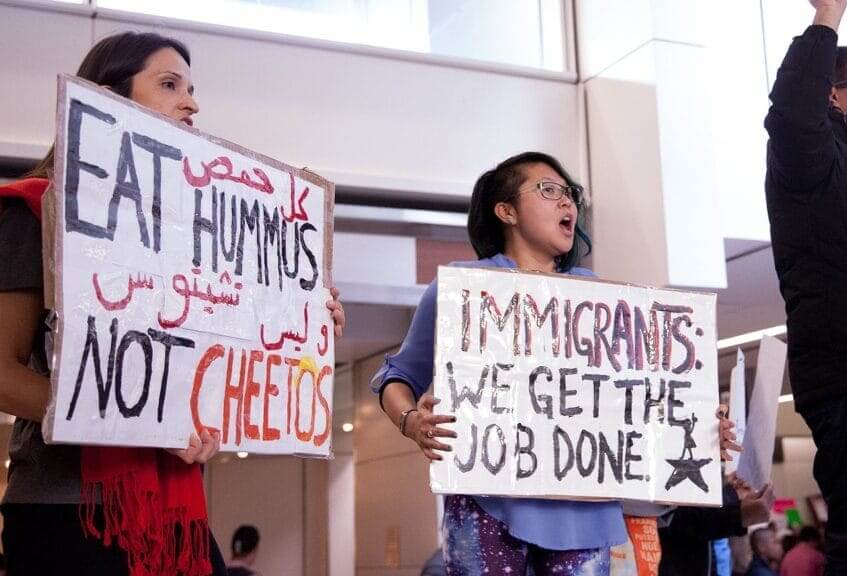 EAT كل حمص
HUMMUS
و ليس تشيتوس
NOT CHEETOS
IMMIGRANTS:
WE GET THE
JOB DONE.